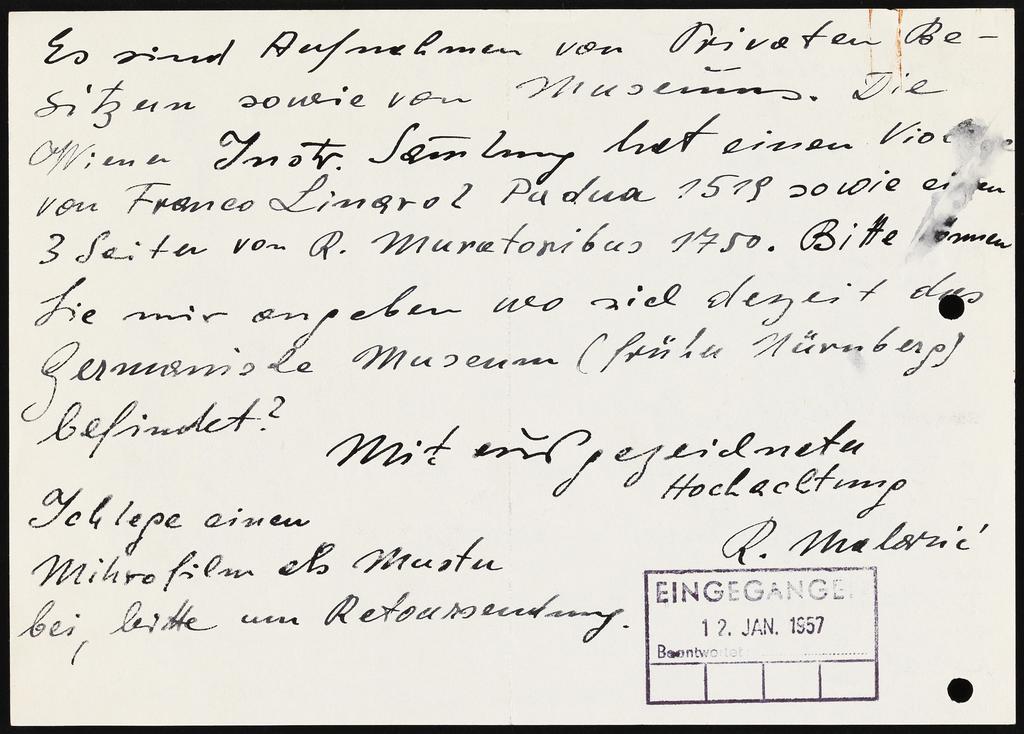 Es sind Aufnahmen von Privaten Be-
sitzern sowie von Museums. Die
Wiener Instr. Samlung hat einen
von Franco Linarol Padua 1519 sowie einen
3 Seiter von R. Muratoribus 1750. Bitte können
Sie mir angeben wo sich derzeit das
Germanische Museum (früher Nürnberg)
befindet?
Mit ausgezeichneter
Hochachtung
R. Malarić
Ich lege einen
Mikrofilm als Muster
bei, bitte um Retoursendung.
EINGEGANGEN
12. JAN. 1957
Beantwortet